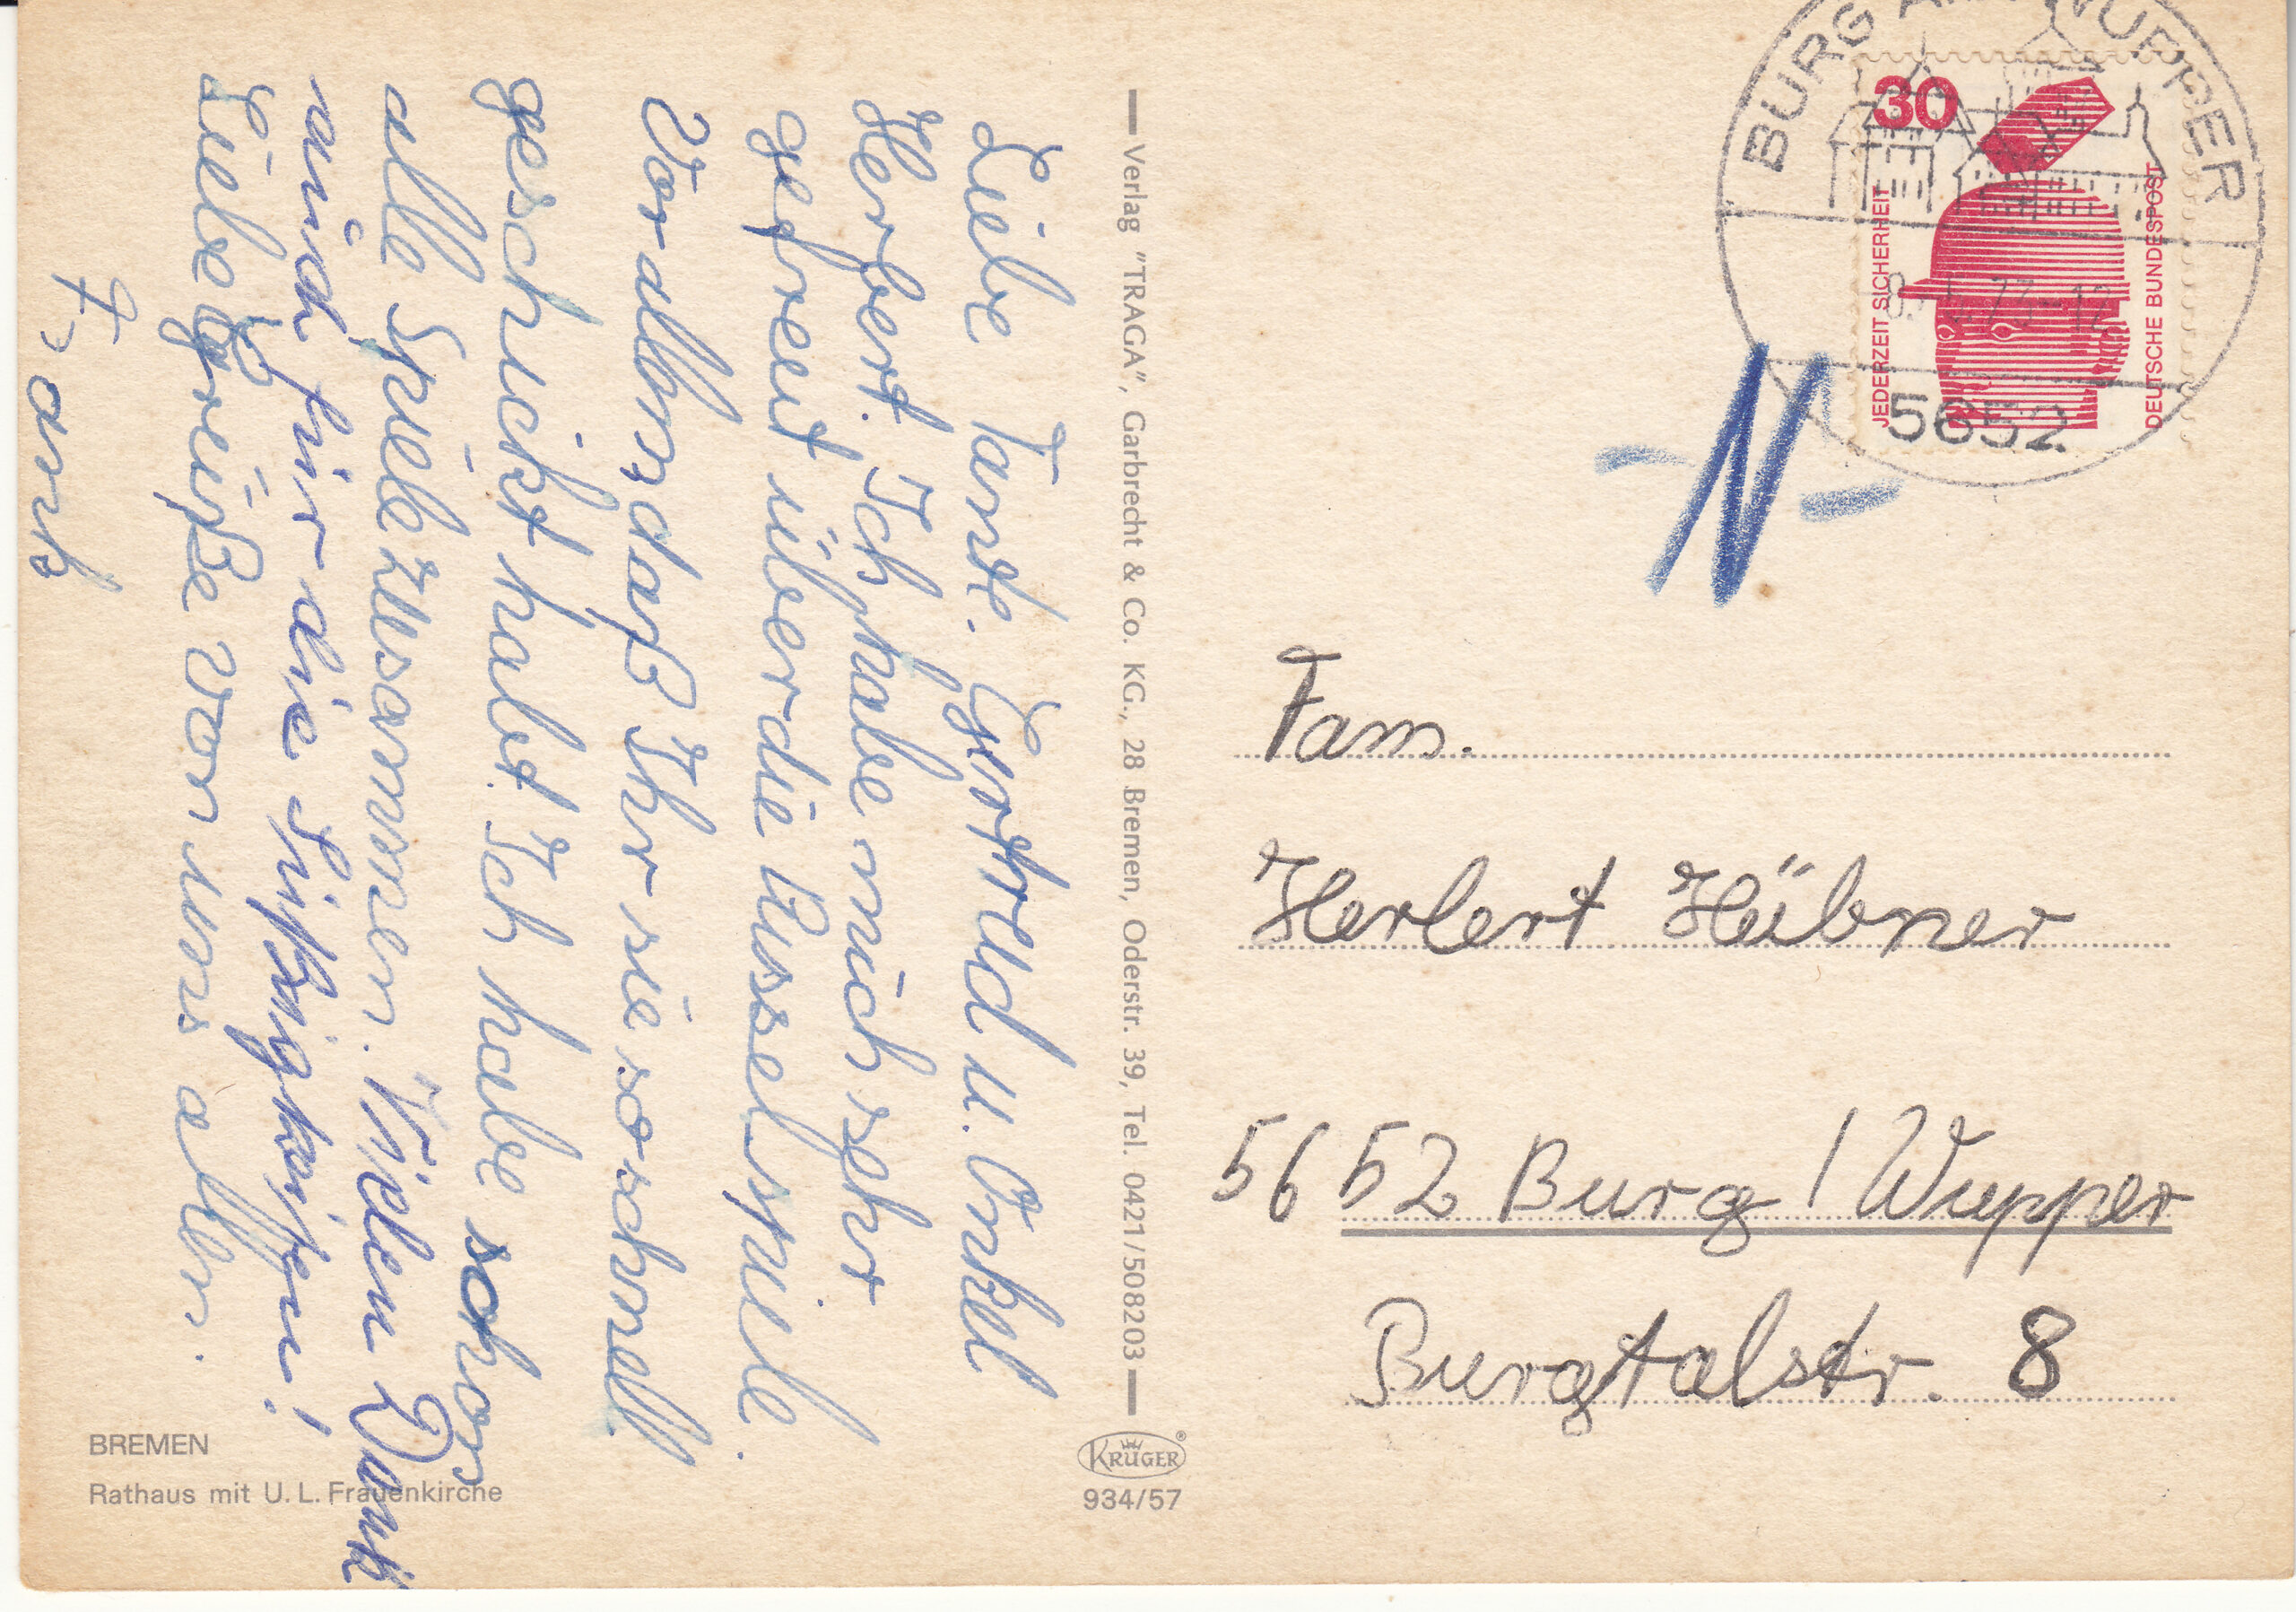 Liebe Tante Gertrud u. Onkel
Herbert. Ich habe mich sehr
gefreut über die Russelspiele.
Vor allem, daß Ihr sie so schnell
geschickt habt. Ich habe schon
alle Spiele zusammen. Vielen Dank
auch für die Süßigkeiten!
Liebe Grüße von uns allen.
Frank
Verlag "TRAGA", Garbrecht & Co. KG., 28 Bremen, Oderstr. 39, Tel. 0421/508203
BREMEN
Rathaus mit U. L. Frauenkirche
KRÜGER
934/57
BURG AN DER WUPPER
5652
30
JEDERZEIT SICHERHEIT
DEUTSCHE BUNDESPOST
-N-
Fam.
Herbert Hübner
5652 Burg / Wupper
Burgtalstr. 8